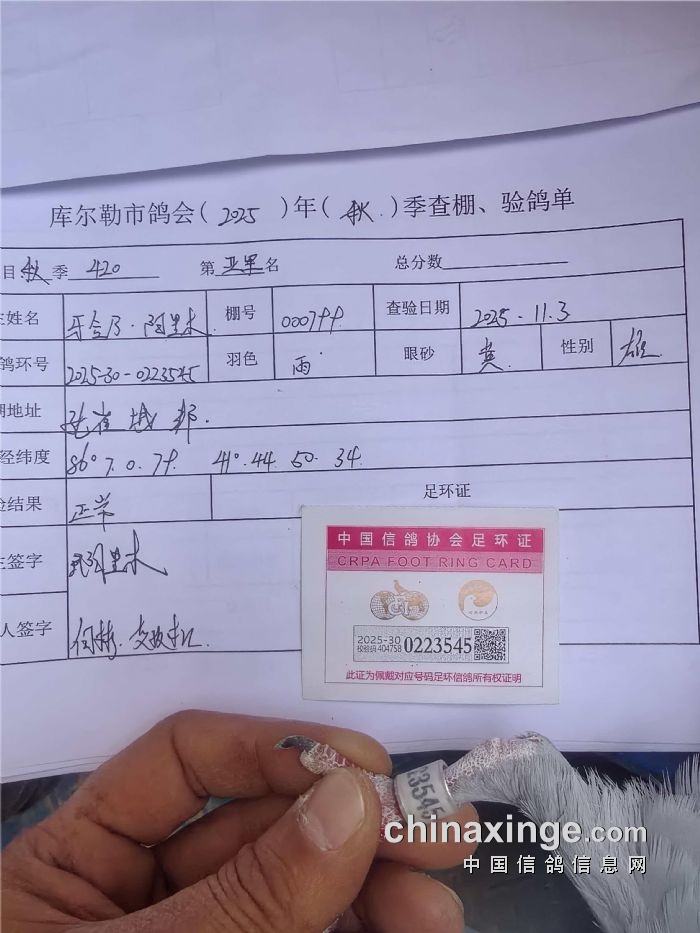 库尔勒市鸽会(2025)年(秋.)季查棚、验鸽单
目秋季 420 第亚军名 总分数
主姓名 牙合乃·阿里木 棚号 000799 查验日期 2025-11.3
鸽环号 2025-30-0223545 羽色 雨 眼砂 黄. 性别 雄.
棚地址
经纬度 86°7.0.79 41°.44.50.34
验结果 正常 足环证
主签字 阿里木
人签字
中国信鸽协会足环证
CRPA FOOT RING CARD
2025-30
校验码 404758 0223545
此证为佩戴对应号码足环信鸽所有权证明
23545
chinaxinge.com
中国信鸽信息网